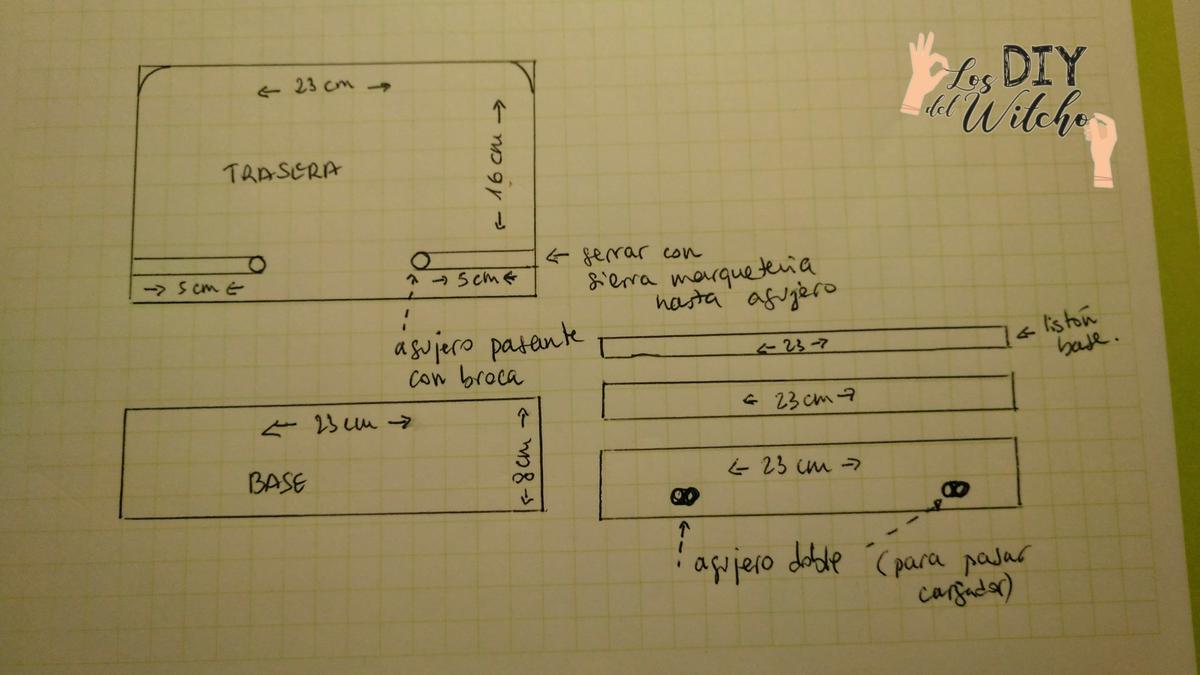 Los DIY
del Witcho
← 23 cm →
TRASERA
← 16 cm →
→ 5 cm ←
→ 5 cm ←
← serrar con
sierra marqueteria
hasta agujero
agujero pasante
con broca
← 23 →
← listón
base.
← 23 cm →
← 23 cm →
BASE
← 8cm →
← 23 cm →
agujero doble (para pasar
cargador)